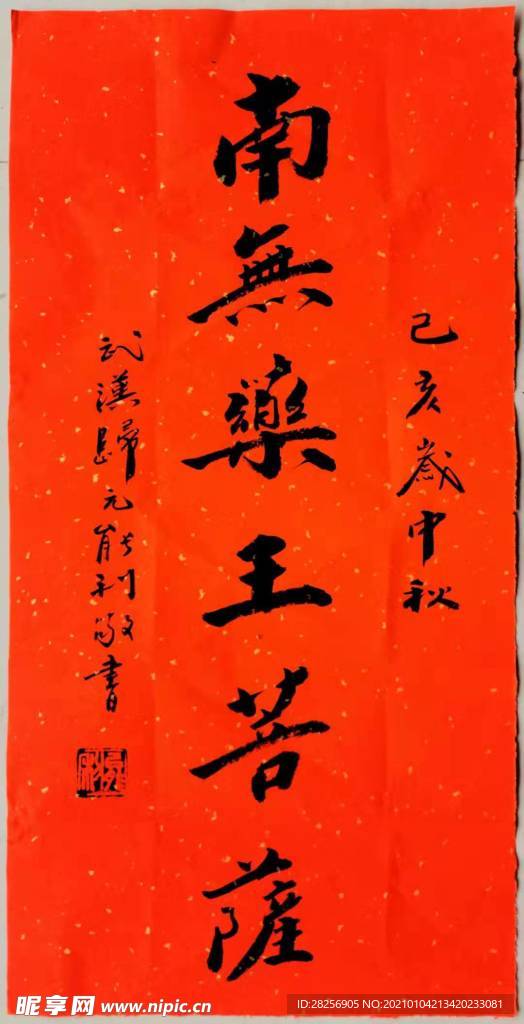 己亥歲中秋
南無藥王菩薩
武漢歸元能利敬書
昵享网 www.nipic.cn
ID:28256905 NO:20210104213420233081